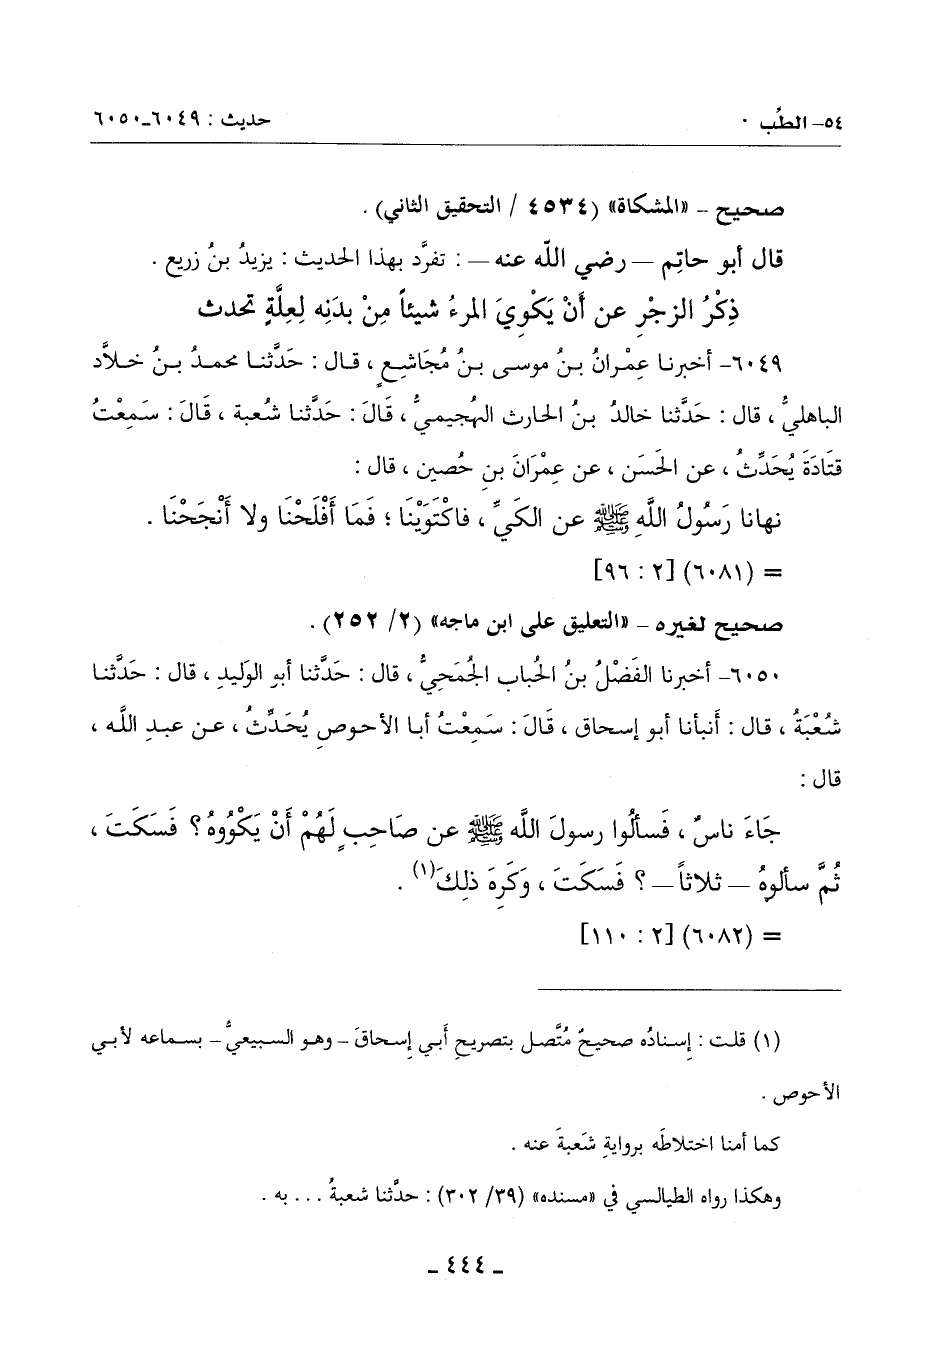 ٥٤- الطِّب ٠ حديث : ٦٠٤٩ـ٦٠٥٠
صحيح - «المشكاة» (٤٥٣٤ / التحقيق الثاني) .
قال أبو حاتِم — رضي اللَّه عنه — : تفرَّد بهذا الحديث : يزيدُ بنُ زريع .
ذِكْرُ الزجْرِ عن أَنْ يَكْوِيَ المرءُ شيئاً مِنْ بدَنِه لِعِلَّةٍ تحدث
٦٠٤٩- أخبرنا عِمْرانُ بنُ موسى بنُ مُجَاشعٍ ، قال : حَدَّثنا محمدُ بنُ خلاَّد
الباهليُّ ، قال : حَدَّثنا خالدُ بنُ الحارث الهُجيميُّ ، قَالَ : حَدَّثنا شُعبة ، قَالَ : سَمِعْتُ
قتَادَةَ يُحَدِّثُ ، عن الحَسَن ، عن عِمْرَانَ بنِ حُصين ، قال :
نهانا رَسُولُ اللَّهِ ﷺ عن الكَيِّ ، فاكْتَوَيْنَا ؛ فَمَا أَفْلَحْنَا ولا أَنْجَحْنَا .
= (٦٠٨١) [٢ : ٩٦]
صحيح لغيره - «التعليق على ابن ماجه» (٢/ ٢٥٢) .
٦٠٥٠- أخبرنا الفَضْلُ بنُ الحُباب الجُمَحِيُّ ، قال : حَدَّثنا أبو الوَليدِ ، قال : حَدَّثنا
شُعْبَةُ ، قال : أَنبأنا أبو إسحاق ، قَالَ : سَمِعْتُ أبا الأحوصِ يُحَدِّثُ ، عن عبدِ اللَّه ،
قال :
جَاءَ ناسٌ ، فَسألُوا رسولَ اللَّه ﷺ عن صَاحِبٍ لَهُمْ أَنْ يَكْوُوهُ ؟ فَسَكَتَ ،
ثُمَّ سألوهُ — ثلاثاً — ؟ فَسَكَتَ ، وَكَرِهَ ذلِكَ(١) .
= (٦٠٨٢) [٢ : ١١٠]
(١) قلت : إسنادُه صحيحٌ مُتَّصل بتصريحِ أَبي إسحاقَ - وهو السبيعيُّ - بسماعه لأبي
الأحوص .
كما أمنا اختلاطَه بروايةِ شُعبةَ عنه .
وهكذا رواه الطيالسي في «مسنده» (٣٩/ ٣٠٢) : حدَّثنا شعبةُ . . . به .
ـ ٤٤٤ ـ